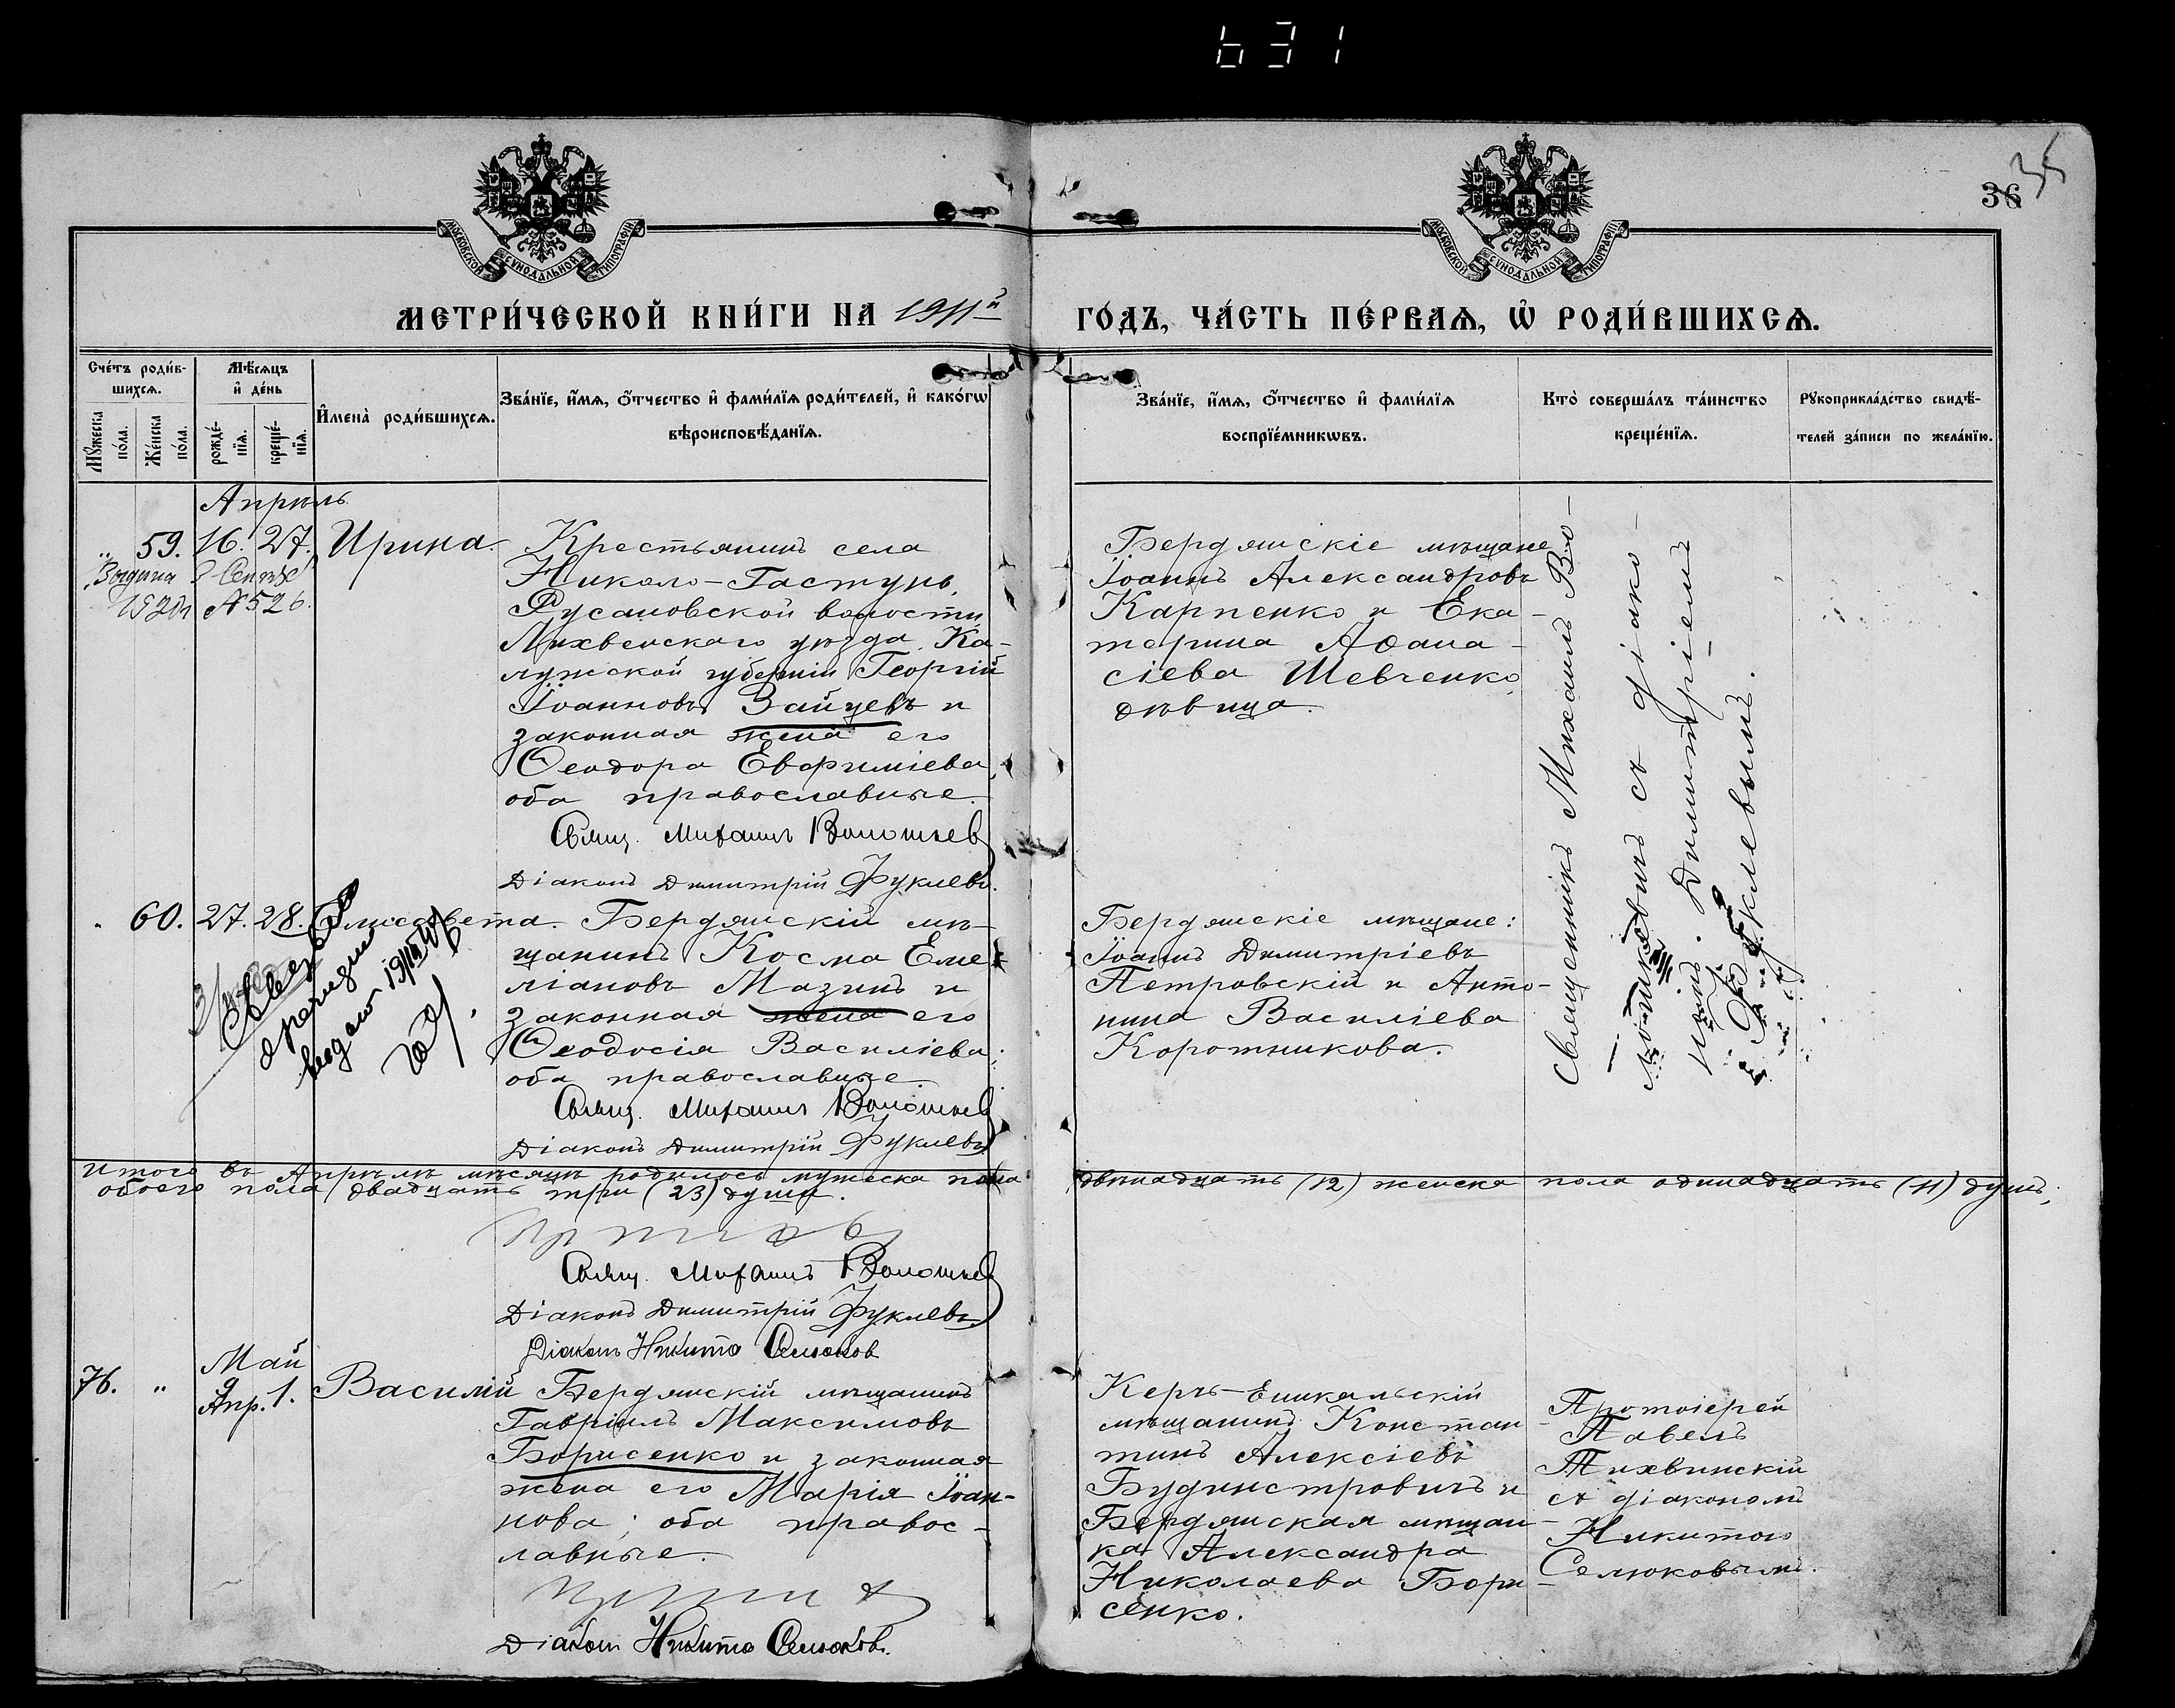 631
36
35
МОСКОВСКОЙ СѴНОДАЛЬНОЙ ТИПОГРАФІИ
МОСКОВСКОЙ СѴНОДАЛЬНОЙ ТИПОГРАФІИ
МЕТРИ́ЧЕСКОЙ КНИ́ГИ НА 1911й ГО́ДЪ, ЧА́СТЬ ПЕ́РВАѦ, Ѡ РОДИ́ВШИХСѦ.
Сче́тъ роди́в-
шихсѧ.
Мѹ́жеска по́ла.
Же́нска по́ла.
Мѣ́сѧцъ
и҆ де́нь
рожде́-
нїѧ.
креще́-
нїѧ.
И҆мена̀ роди́вшихсѧ.
Зва́нїе, и҆́мѧ, ѻ҆́тчество и҆ фами́лїѧ роди́телей, и҆ како́гѡ
вѣроисповѣ́данїѧ.
Зва́нїе, и҆́мѧ, ѻ҆́тчество и҆ фами́лїѧ
воспрїе́мникѡвъ.
Кто̀ соверша́лъ та́инство
креще́нїѧ.
Рѹкоприкла́дство свидѣ́-
телей за́писи по жела́нїю.
Апрѣль
" 59. 16. 27. Ирина.
№ 526.
Крестьянинъ села
Николо-Гастунь,
Русановской волости,
Лихвенскаго уѣзда, Ка-
лужской губерніи Георгій
Іоанновъ Зайцевъ и
законная жена его
Ѳеодора Евфиміева,
оба православные.
Свящ. Михаилъ Волошкев
Діаконъ Димитрій Фуклевъ.
Бердянскіе мѣщане
Іоаннъ Александровъ
Карпенко и Ека-
терина Аѳана-
сіева Шевченко,
дѣвица.
Священникъ Михаилъ Во-
лошкевичъ съ діако-
номъ Димитріемъ
Фуклевымъ.
" 60. 27. 28. Елисавета.
Бердянскій мѣ-
щанинъ Косма Еме-
ліановъ Мазинъ и
законная жена его
Ѳеодосія Василіева;
оба православные.
Свящ. Михаилъ Волошкев
Діаконъ Димитрій Фуклевъ
Бердянскіе мѣщане:
Іоаннъ Димитріевъ
Петровскій и Анто-
нина Василіева
Коротникова.
Итого въ Апрѣлѣ мѣсяцѣ родилось мужеска пола двѣнадцать (12) женска пола одинадцать (11) душъ,
обоего пола двадцать три (23) души.
Свящ. Михаилъ Волошкев
Діаконъ Димитрій Фуклевъ
Діаконъ Никита Селюков
Май
76. " Апр. 9 1. Василій
Бердянскій мѣщанинъ
Гавріилъ Максимовъ
Борисенко и законная
жена его Марія Іоан-
нова; оба правос-
лавные.
Діаконъ Никита Селюковъ.
Керчь-Еникальскій
мѣщанинъ Констан-
тинъ Алексіевъ
Будинстровичъ и
Бердянская мѣщан-
ка Александра
Николаева Бори-
сенко.
Протоіерей
Павелъ
Тихвинскій
съ діакономъ
Никитою
Селюковымъ.